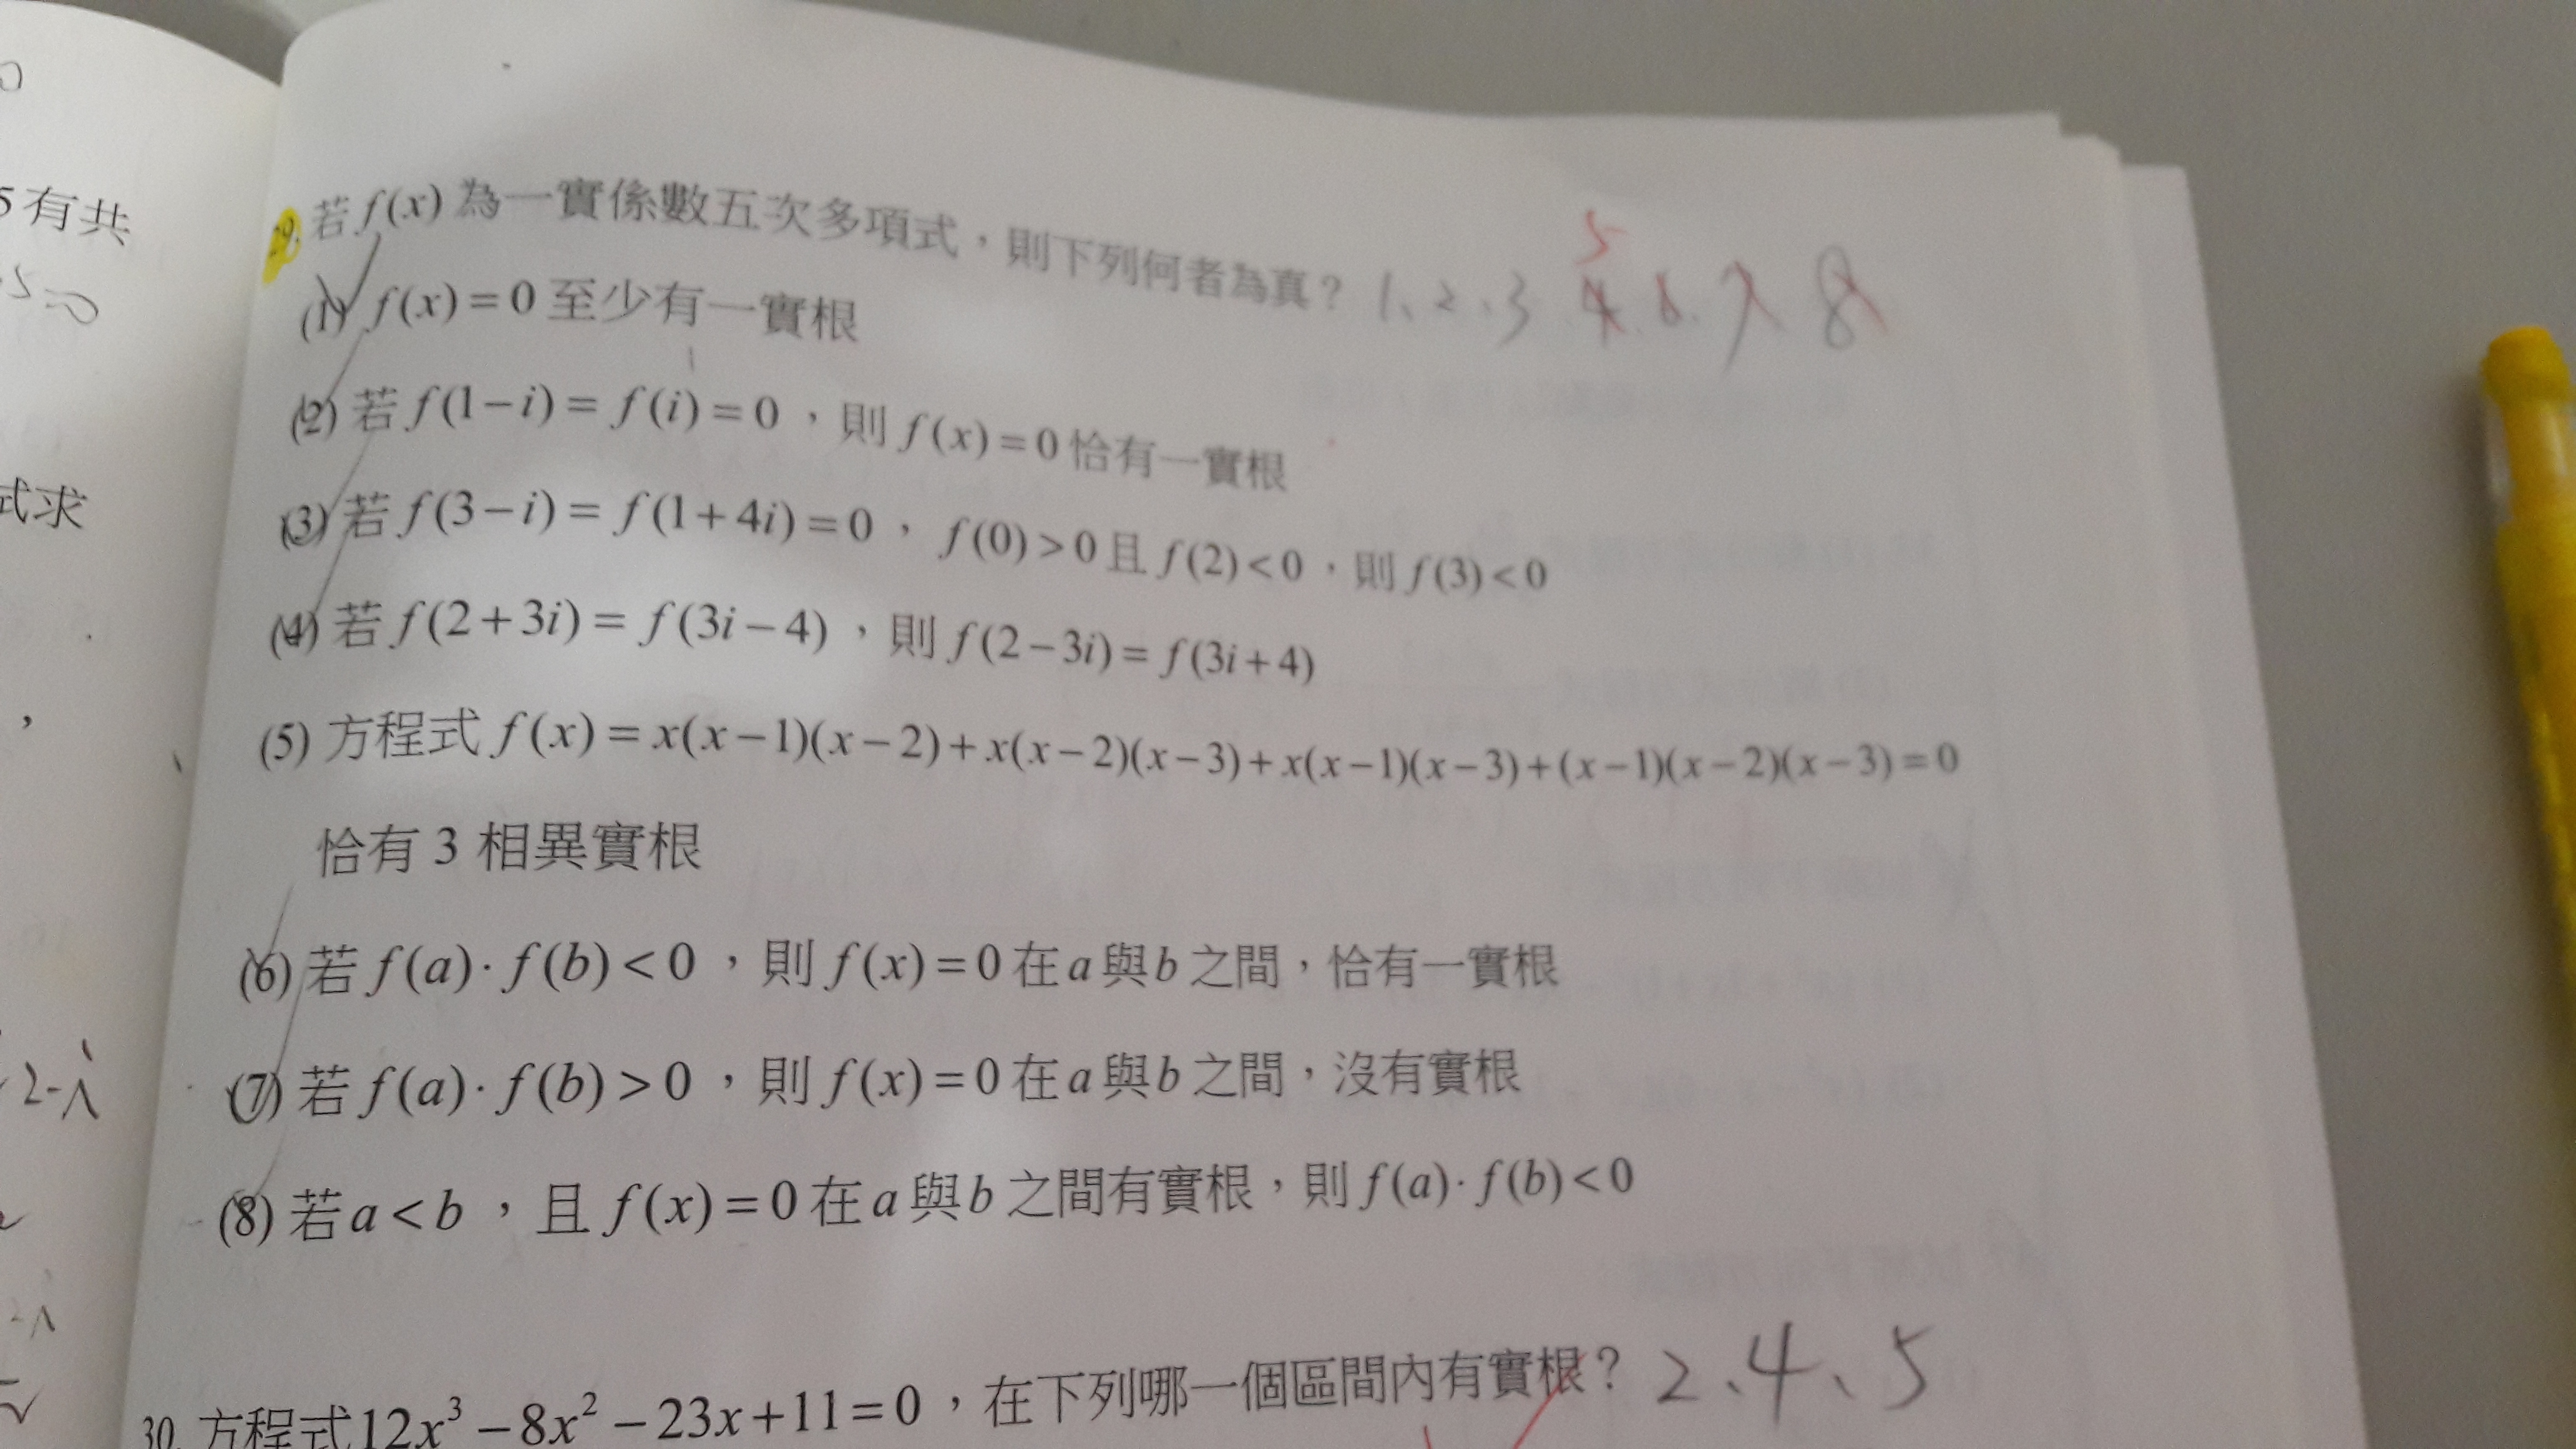 29. 若 f(x) 為一實係數五次多項式，則下列何者為真？ 1、2、3 4. 6. 7 8
5
(1) f(x)=0 至少有一實根
(2) 若 f(1−i)= f(i)=0 ，則 f(x)=0 恰有一實根
(3) 若 f(3−i)= f(1+4i)=0 ， f(0)>0 且 f(2)<0 ，則 f(3)<0
(4) 若 f(2+3i)= f(3i−4) ，則 f(2−3i)= f(3i+4)
(5) 方程式 f(x)= x(x−1)(x−2)+x(x−2)(x−3)+x(x−1)(x−3)+(x−1)(x−2)(x−3)=0
恰有 3 相異實根
(6) 若 f(a)· f(b)<0 ，則 f(x)=0 在 a 與 b 之間，恰有一實根
(7) 若 f(a)· f(b)>0 ，則 f(x)=0 在 a 與 b 之間，沒有實根
(8) 若 a<b ，且 f(x)=0 在 a 與 b 之間有實根，則 f(a)· f(b)<0
30. 方程式 12x³ −8x² −23x+11=0 ，在下列哪一個區間內有實根？ 2、4、5
5 有共
式求
，
2-i